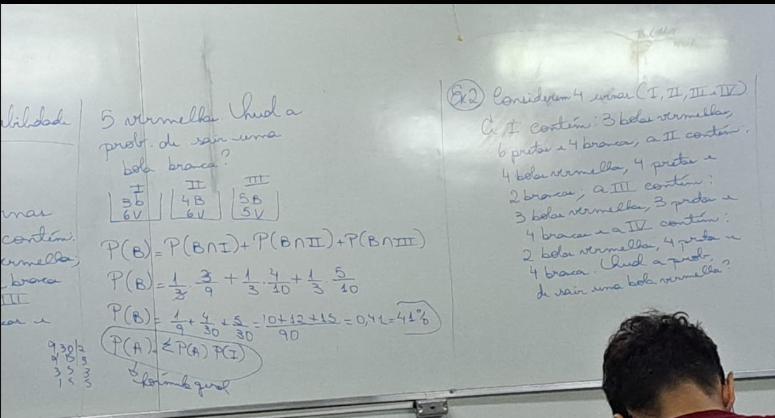 5 vermelha Qual a
prob. de sair uma
bola branca?
I II III
3b 4B 5B
6V 6V 5V
P(B) = P(B∩I) + P(B∩II) + P(B∩III)
P(B) = 1/3 . 3/9 + 1/3 . 4/10 + 1/3 . 5/10
P(B) = 1/9 + 4/30 + 5/30 = 10+12+15/90 = 0,41 = 41%
P(A) = Σ P(A) P(I)
fórmula geral
contém:
branca
III
9,30 2
3 5 3
1 5 5
Ex2 Considerem 4 urnas (I, II, III e IV)
A I contém: 3 bolas vermelhas,
6 pretas e 4 brancas, a II contém:
4 bolas vermelha, 4 pretas e
2 brancas; a III contém:
3 bolas vermelha, 3 pretas e
4 brancas e a IV contém:
2 bolas vermelha, 4 preta e
4 branca. Qual a prob.
de sair uma bola vermelha?